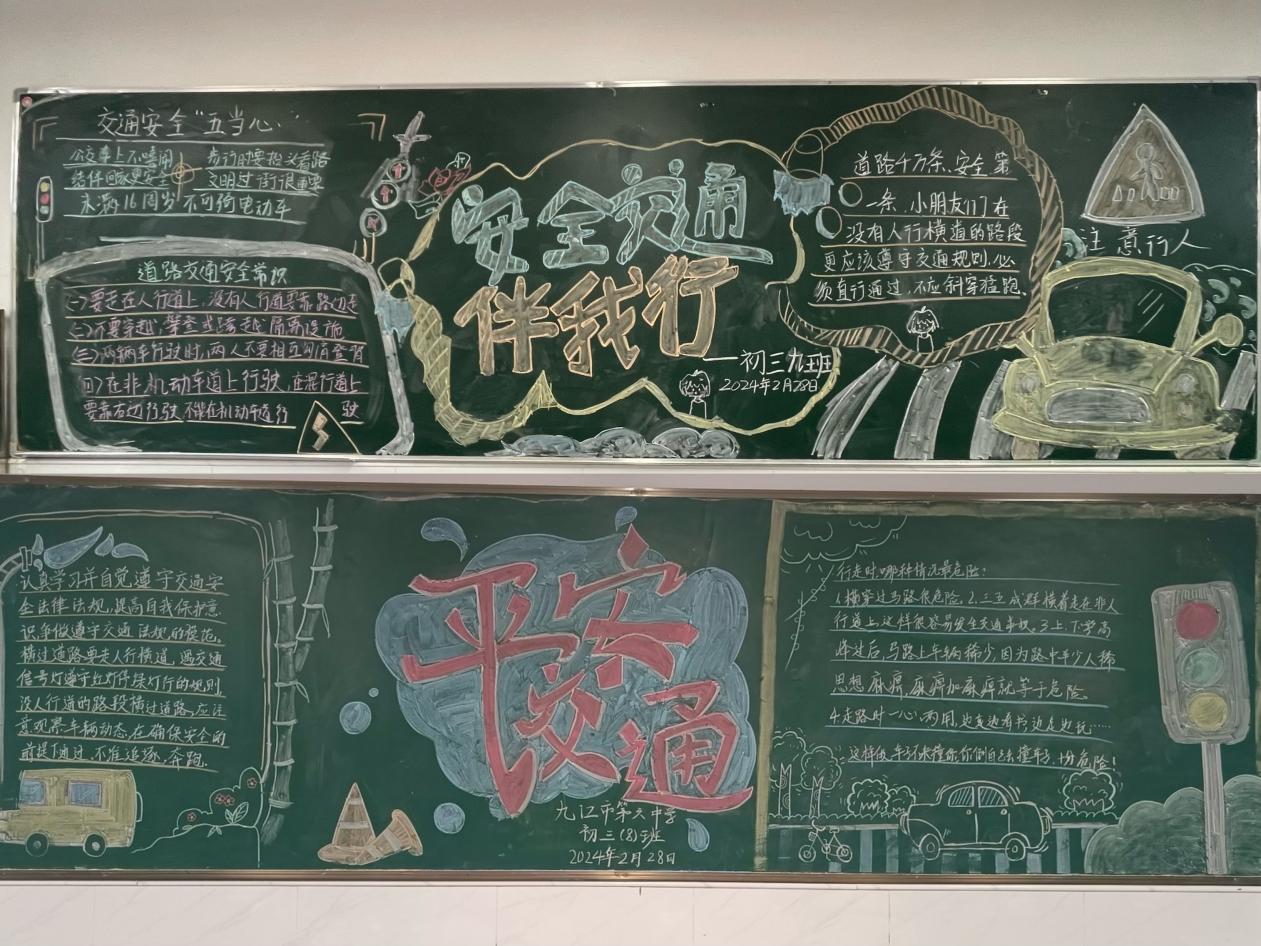 交通安全“五当心”
公交车上不嘻闹
步行时要想义看路
结伴回家更安全
文明过街很重要
未满16周岁不可骑电动车
道路交通安全常识
(一)要走在人行道上,没有人行道要靠路边走
(二)不要穿越、攀登或跨越隔离设施
(三)两辆车行驶时,两人不要相互勾肩登背
四)在非机动车道上行驶,在混行道上
要靠右边行驶不能在机动车道行驶
安全交通
伴我行
——初三九班
2024年2月28日
道路千万条、安全第
一条,小朋友们在
没有人行横道的路段
更应该遵守交通规则.必
须直行通过,不应斜穿猛跑.
注意行人
认真学习并自觉遵守交通安
全法律法规,提高自我保护意
识争做遵守交通法规的模范。
横过道路要走人行横道,遇交通
信号灯遵守红灯停绿灯行的规则
没人行道的路段横过道路,应注
意观察车辆动态,在确保安全的
前提下通过,不准追逐,奔跑.
平安
交通
九江市第六中学
初三(8)班
2024年2月28日
行走时,哪种情况最危险?
1.横穿过马路很危险,2.三五成群横着走在非人
行道上,这样很容易发生交通事故,3.上、下学高
峰过后,马路上车辆稀少,因为路中车少人稀
思想麻痹,麻痹加麻痹就等于危险.
4.走路时一心两用,边走边看书边走边玩……
这样做,车子不来撞你,你倒自己去撞车子、十分危险!